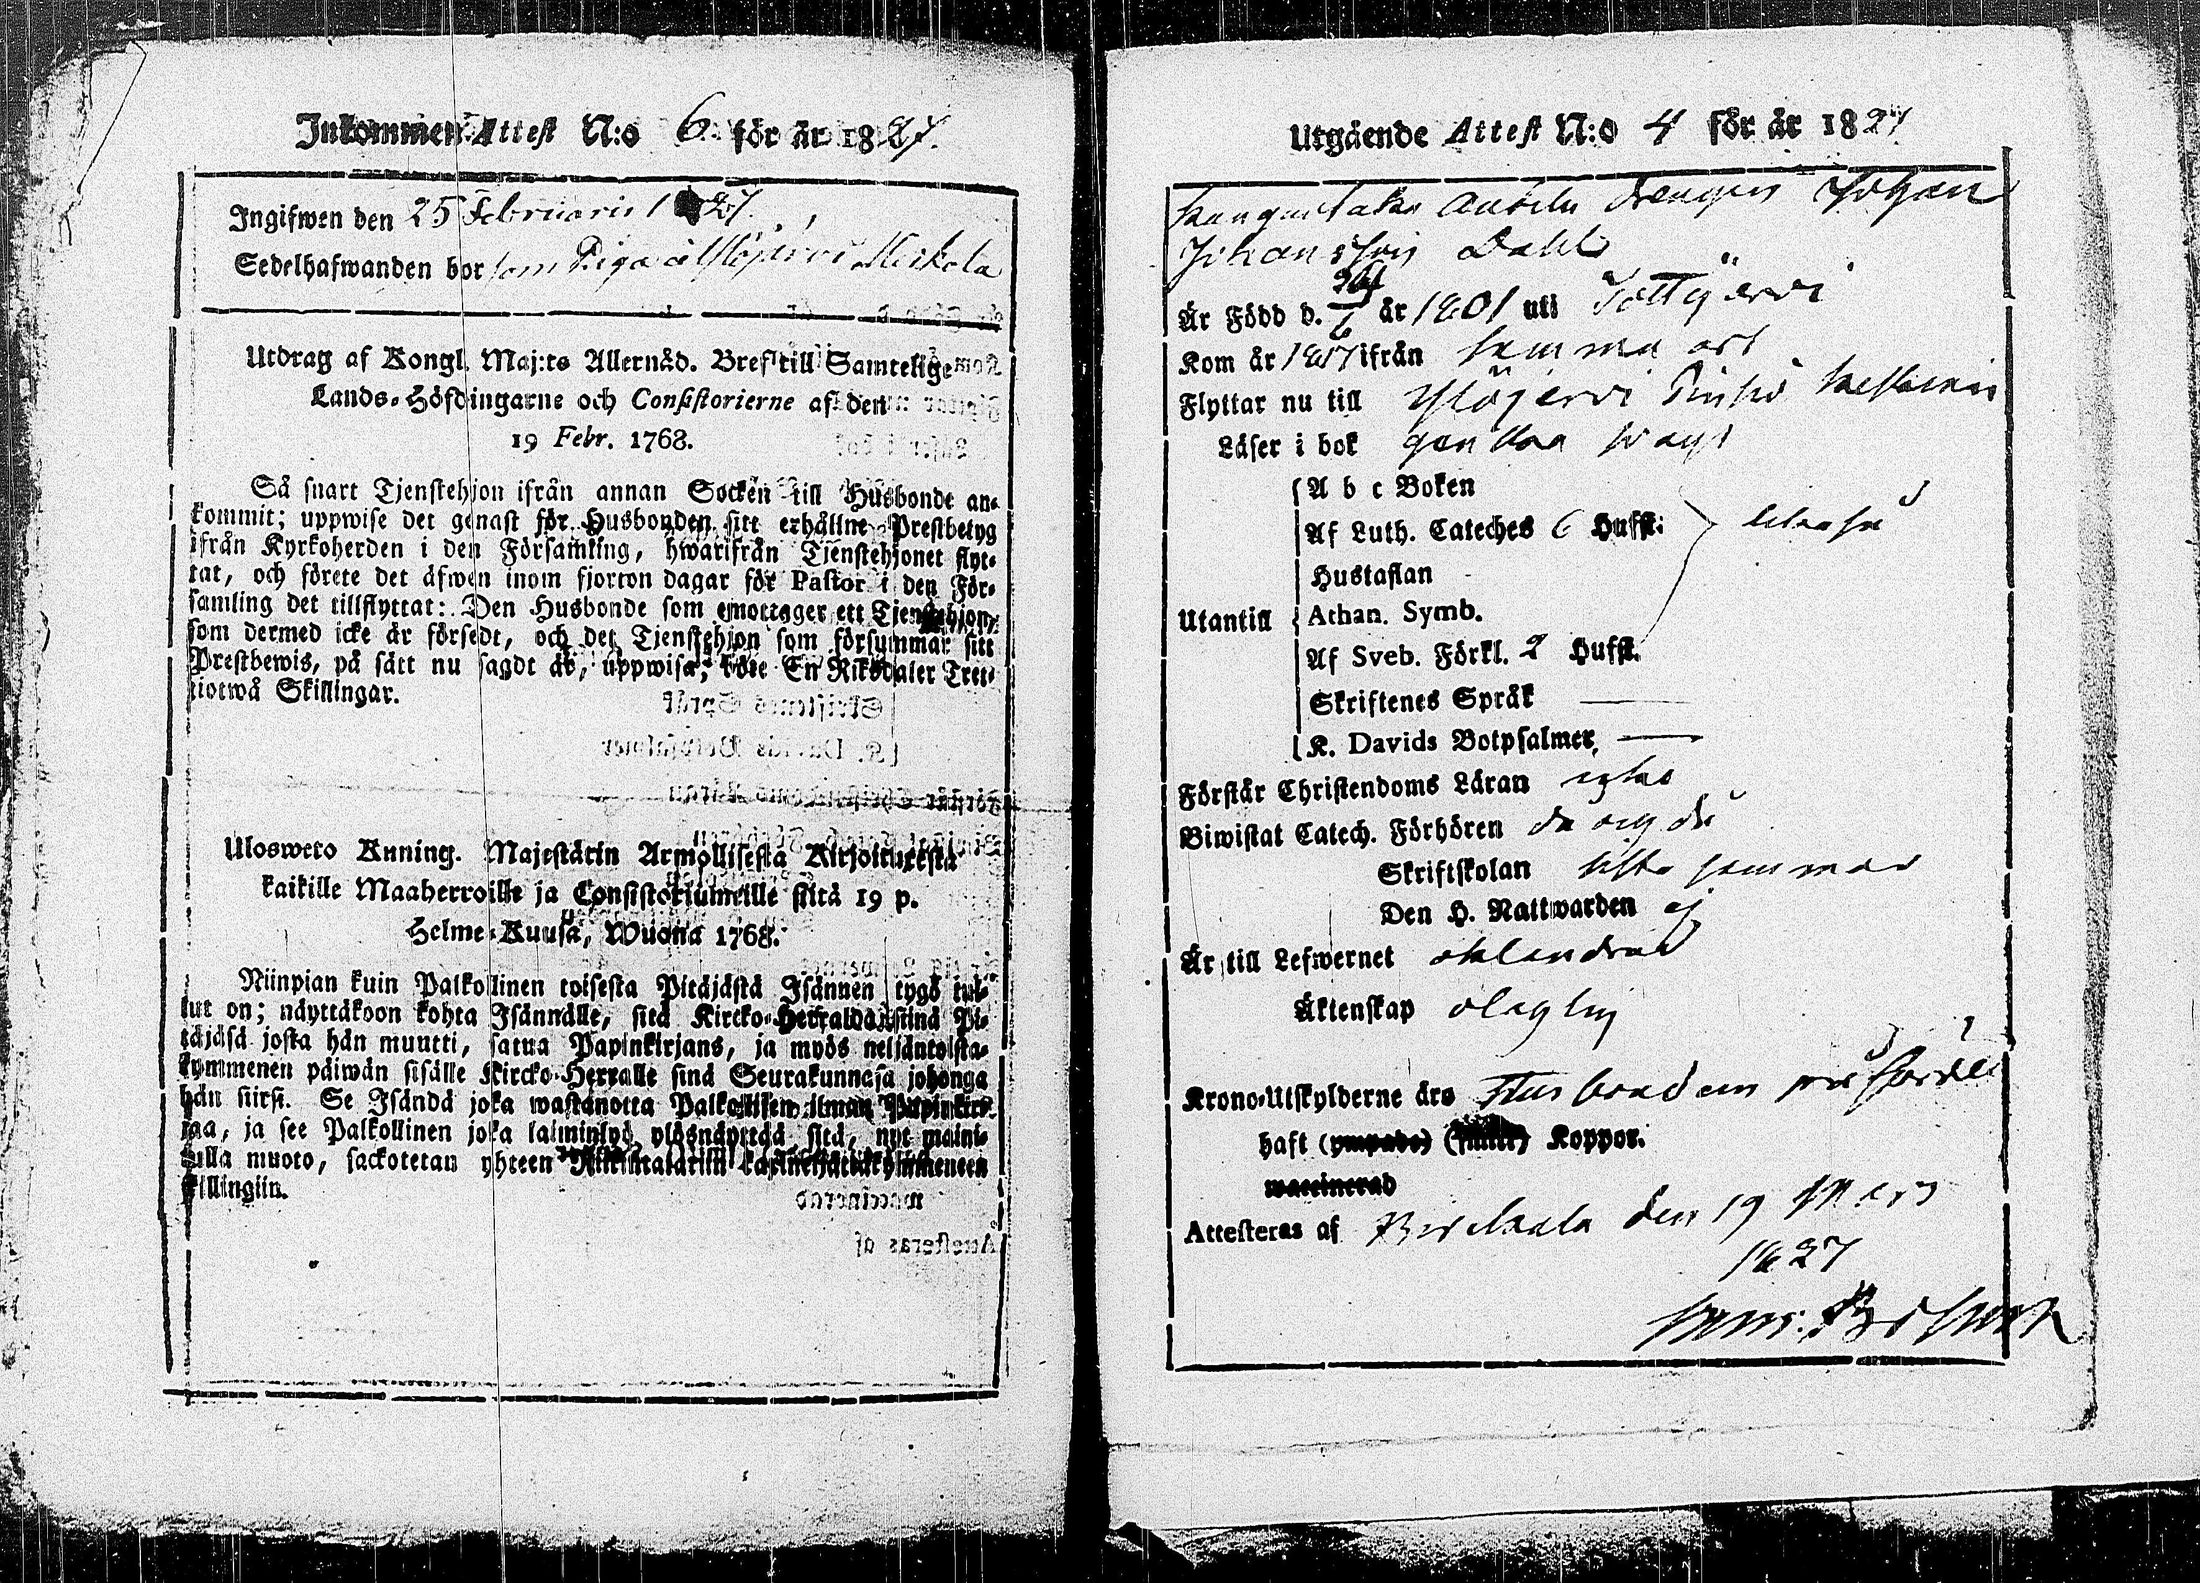 Inkommen Attest N:o 6 för år 1827.
Ingifwen den 25 Februarii 1827.
Sedelhafwanden bor som Piga i Ylöjärvi Mikola
Utdrag af Kongl. Maj:ts Allernåd. Bref till Samtelige
Lands-Höfdingarne och Consistorierne af den
19 Febr. 1768.
Så snart Tjenstehjon ifrån annan Socken till Husbonde an-
kommit; uppwise det genast för Husbonden sitt erhållne Prestbetyg
ifrån Kyrkoherden i den Församling, hwarifrån Tjenstehjonet flyt-
tat, och förete det äfwen inom fjorton dagar för Pastor i den För-
samling det tillflyttat: Den Husbonde som emottager ett Tjenstehjon,
som dermed icke är försedt, och det Tjenstehjon som försummar sitt
Prestbewis, på sätt nu sagdt är, uppwisa, böte En Riksdaler Tret-
tiotwå Skillingar.
Ulosweto Kuning. Majestätin Armollisesta Kirjoituxesta
kaikille Maaherroille ja Consistoriumeille siitä 19 p.
Helme-Kuusa, Wuona 1768.
Niinpian kuin Palkollinen toisesta Pitäjästä Isännen tygö tul-
lut on; näyttäkoon kohta Isännälle, sitä Kircko-Herralda siinä Pi-
täjäsä josta hän muutti, satua Papinkirjans, ja myös neljäntoista-
kymmenen päiwän sisälle Kircko-Herralle sinä Seurakunnasa johonga
hän siirsi. Se Isändä joka wastanotta Palkollisen ilman Papinkir-
jaa, ja see Palkollinen joka laiminlyö ylösnäyttää sitä, nyt maini-
tulla muoto, sackotetan yhteen Riikintalariin kaxineljättäkymmeneen
killingiin.
Utgående Attest N:o 4 för år 1827
Drengen Johan
Johansson Dahl
Är Född d. 24/6 år 1801 uti Tottijervi
Kom år 1817 ifrån samma ort
Flyttar nu till Ylöjervi
Läser i bok
A b c Boken
Af Luth. Cateches 6 Hufst.
Hustaflan
Utantill Athan. Symb.
Af Sveb. Förkl. 2 Hufst.
Skriftenes Språk
K. Davids Botpsalmer
Förstår Christendoms Läran
Biwistat Catech. Förhören då och då
Skriftskolan sista sommar
Den H. Nattwarden ej
Är till Lefwernet oklandrad
Äktenskap oläglig
Krono-Utskylderne äro Husbonden
haft (ympade) Koppor.
waccinerad
Attesteras af Birckala den 19 Mars
1827